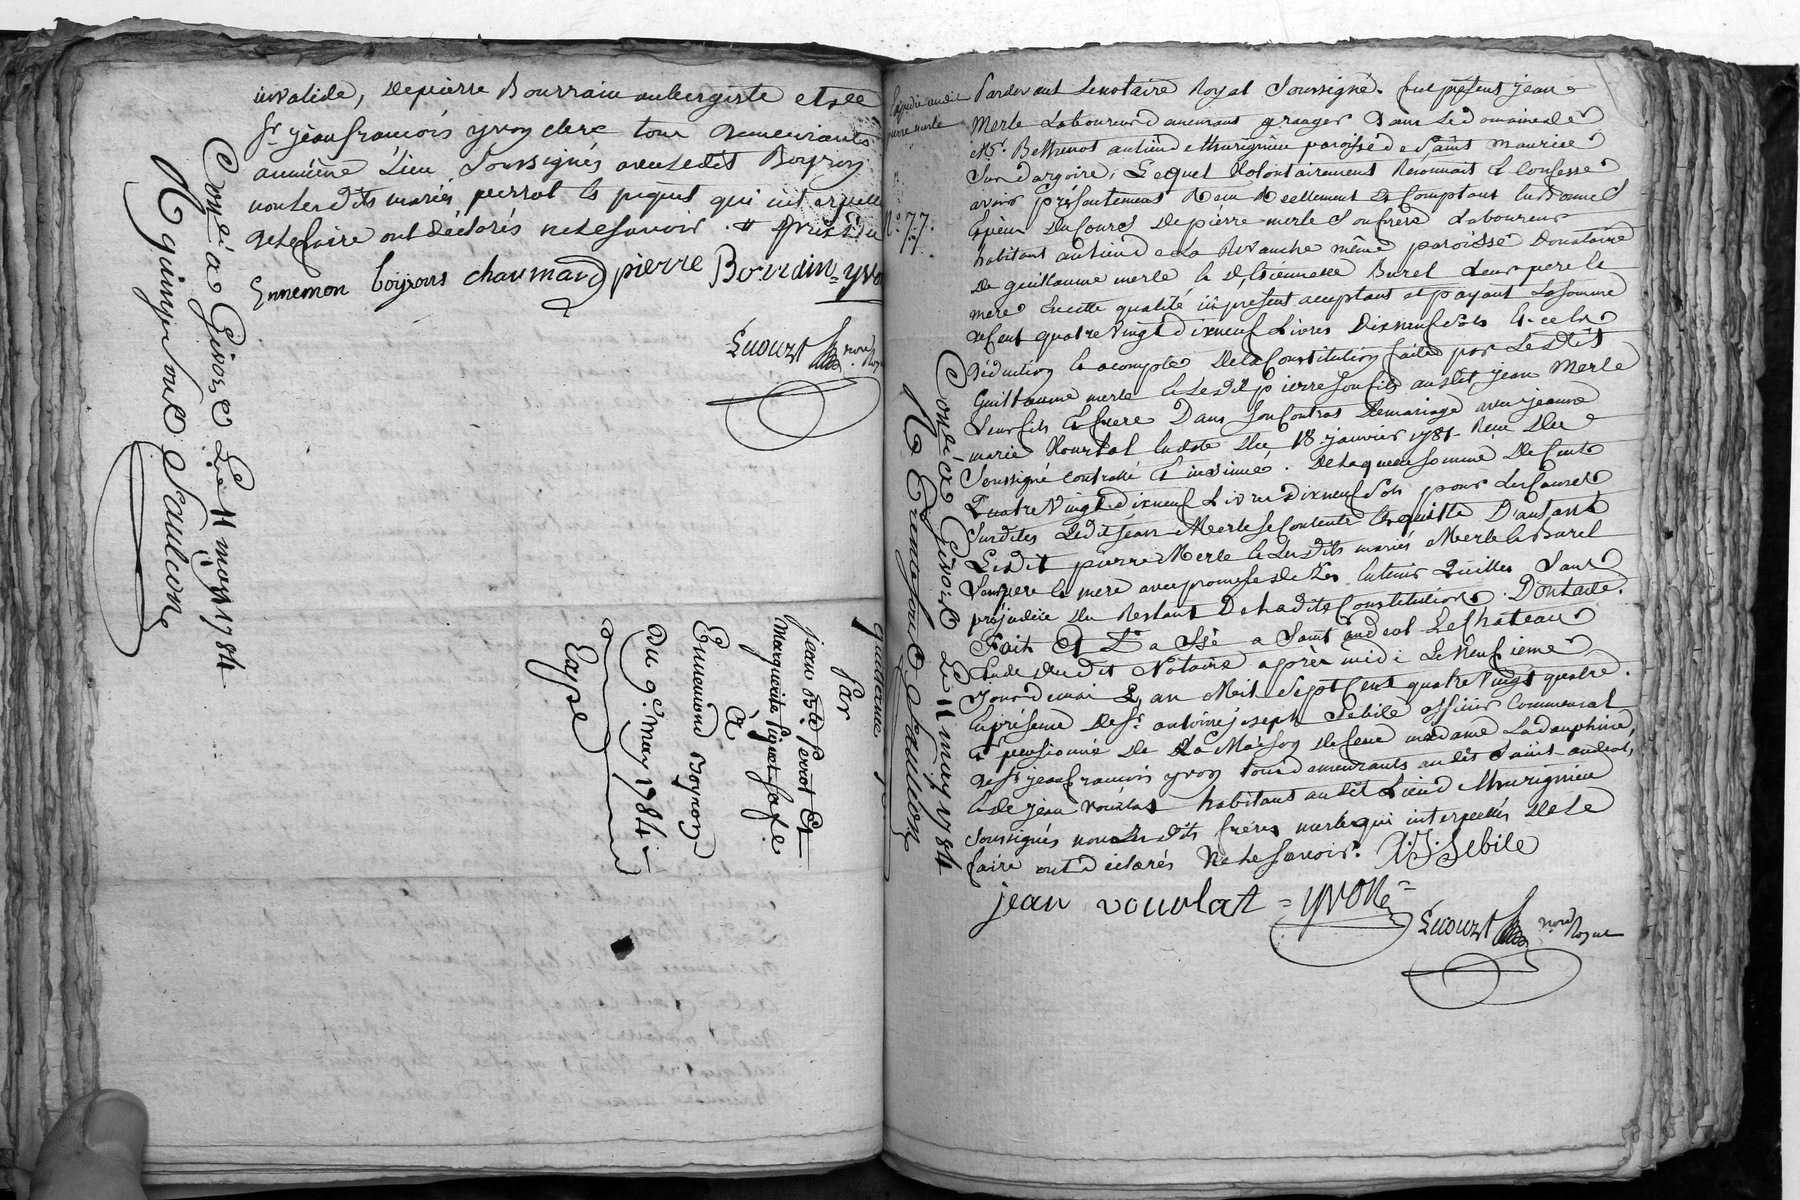 invalide, de pierre Bourrain aubergiste et de
Sr jean francois yvon clerc tous demeurants
au même Lieu Soussignés avec ledit Boyron
non lesdits mariés perrot et piquet qui
de le faire ont déclarés ne le savoir
Ennemon boyrons chaumard pierre Bourdin yvon
Luouzt nore
Conlé à Givors Le 11 may 1784
R quinze sols Saulcon
quittance
par
jean bste perrot et
Marguerite piquet sa fe
à
Ennemond Boyron
Du 9e. may 1784
Expé
Expédié audit
pierre merle
No. 77.
Conlé à Givors Le 11 may 1784
R Trente sols Saulcon
Pardevant Le notaire Royal Soussigné. fut présent jean
Merle Laboureur demeurant granger dans le domaine de
Mr. Bethenot au lieu de Mourignieu paroisse de Saint maurice
Sur dargoire, Lequel volontairement Reconnait et Confesse
avoir présentement Reçu Réellement et Comptant en Bonnes
Espèces du Cours de pierre merle Son frère Laboureur
habitant au lieu de La Revanche même paroisse Donataire
de guillaume merle et d'Etiennette Burel Leurs pere et
mere En cette qualité ici présent acceptant et payant La somme
de Cent quatre vingt dix neuf Livres dix neuf sols Et ce En
déduction et acompte de la Constitution faite par Lesdits
Guillaume merle et Ledit pierre son fils audit jean Merle
Leur fils et frere Dans Son Contrat de mariage avec jeanne
marie vourlat En date du 18 janvier 1781 Reçu du
Soussigné Controllé et insinué. de laquelle somme de Cent
Quatre vingt dix neuf Livres dix neuf sols pour les Causes
Surdites Ledit jean Merle se Contente et quitte D'autant
Ledit pierre Merle et Lesdits mariés Merle et Burel
Ses pere et mere avec promesse de Les En tenir Quittes Sans
préjudice du Restant De ladite Constitution. Dont acte.
Fait et Passé a Saint andeol Le Chateau
Etude dudit Notaire après midi Le Neufieme
jour de mai L'an Mil Sept Cent quatre vingt quatre.
En présence de Sr. antoine joseph Sebile officier Commensal
et pensionné de La Maison de feue madame La dauphine,
de Sr jean francois yvon tous demeurants audit Saint andeol,
et de jean vourlat habitant audit Lieu de Mourignieu
Soussignés non Lesdits frères merle qui interpellés de le
faire ont déclarés Ne le Savoir. A. J. Sebile
jean vourlat yvon
Luouzt nore Royal